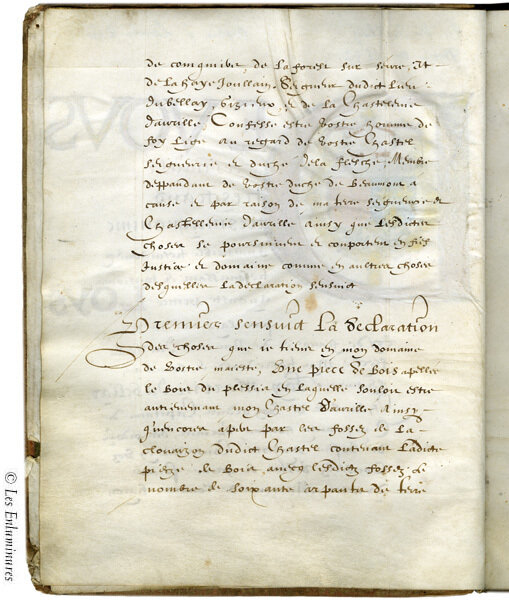 de comquive, de la forest sur seure, Et
de la haye Joullain, Seigneur dudict lieu
du bellay, Gizieux, et de la Chastelenie
davrille Confesse estre vostre homme de
foy lige au regard de vostre Chastel
seigneurie et duche de la flesche, Membre
deppandant de vostre duche de Beaumont a
cause et par raison de ma terre seigneurie et
Chastellenie davrille Ainsy que lesdictes
choses se poursuivent et comportent en fiefs
Justice et domaine comme en aultres choses
desquelles la declaration sensuict
Premier sensuict La declaration
des choses que je tiens en mon domaine
de vostre maieste, Une piece de Bois apelee
le Bois du plessis en laquelle souloit estre
antienement mon Chastel davrille Ainsy
quencores apert par les fossez de la
clouaizon dudict Chastel contenant ladicte
pieze de Bois, avecq lesdictz fossez le
nombre de soixante arpantz de terre
© Les Enluminures